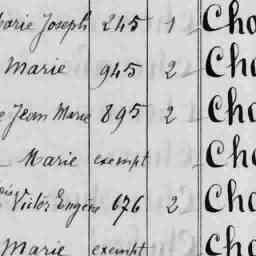 Marie Joseph 245 1 Cha
Marie 945 2 Cha
Jean Marie 895 2 Cha
Marie exempt Cha
Victor Eugène 676 2 Cha
Marie exempt Cha